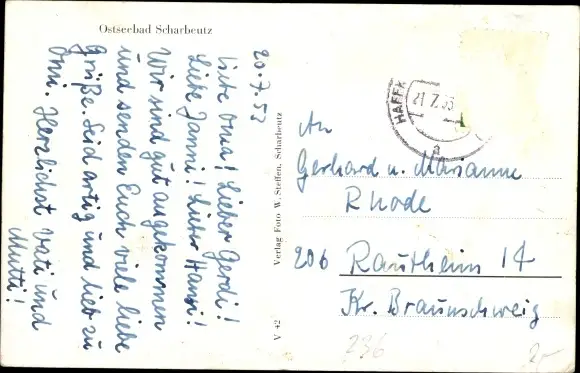 Ostseebad Scharbeutz
20.7.53
Liebe Oma! Lieber Gerdi!
Liebe Janni! Lieber Hansi!
Wir sind gut angekommen
und senden Euch viele liebe
Grüße. Seid artig und lieb zu
Omi. Herzlichst Vati und
Mutti!
Verlag Foto W. Steffen, Scharbeutz
V 42
HAFFK
21.7.53
a
An
Gerhard u. Marianne
Rhode
20b Rautheim 14
Kr. Braunschweig
236
2,-